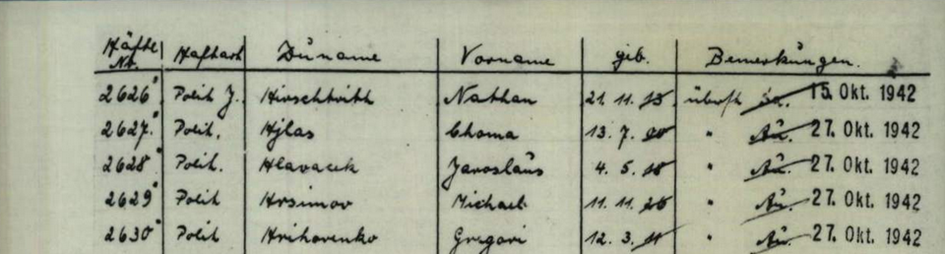 Häftl. Nr. Haftart Zuname Vorname geb. Bemerkungen.
2626 Polit J. Nathan 21. 11. überst 15. Okt. 1942
2627. Polit. Hjlas Choma 13. 7. " Au. 27. Okt. 1942
2628 Polit. Hlavacek Jaroslaus 4. 5. " Au. 27. Okt. 1942
2629 Polit Michael 11. 11. " Au. 27. Okt. 1942
2630 Polit Hrihorenko Gregori 12. 3. " Au. 27. Okt. 1942